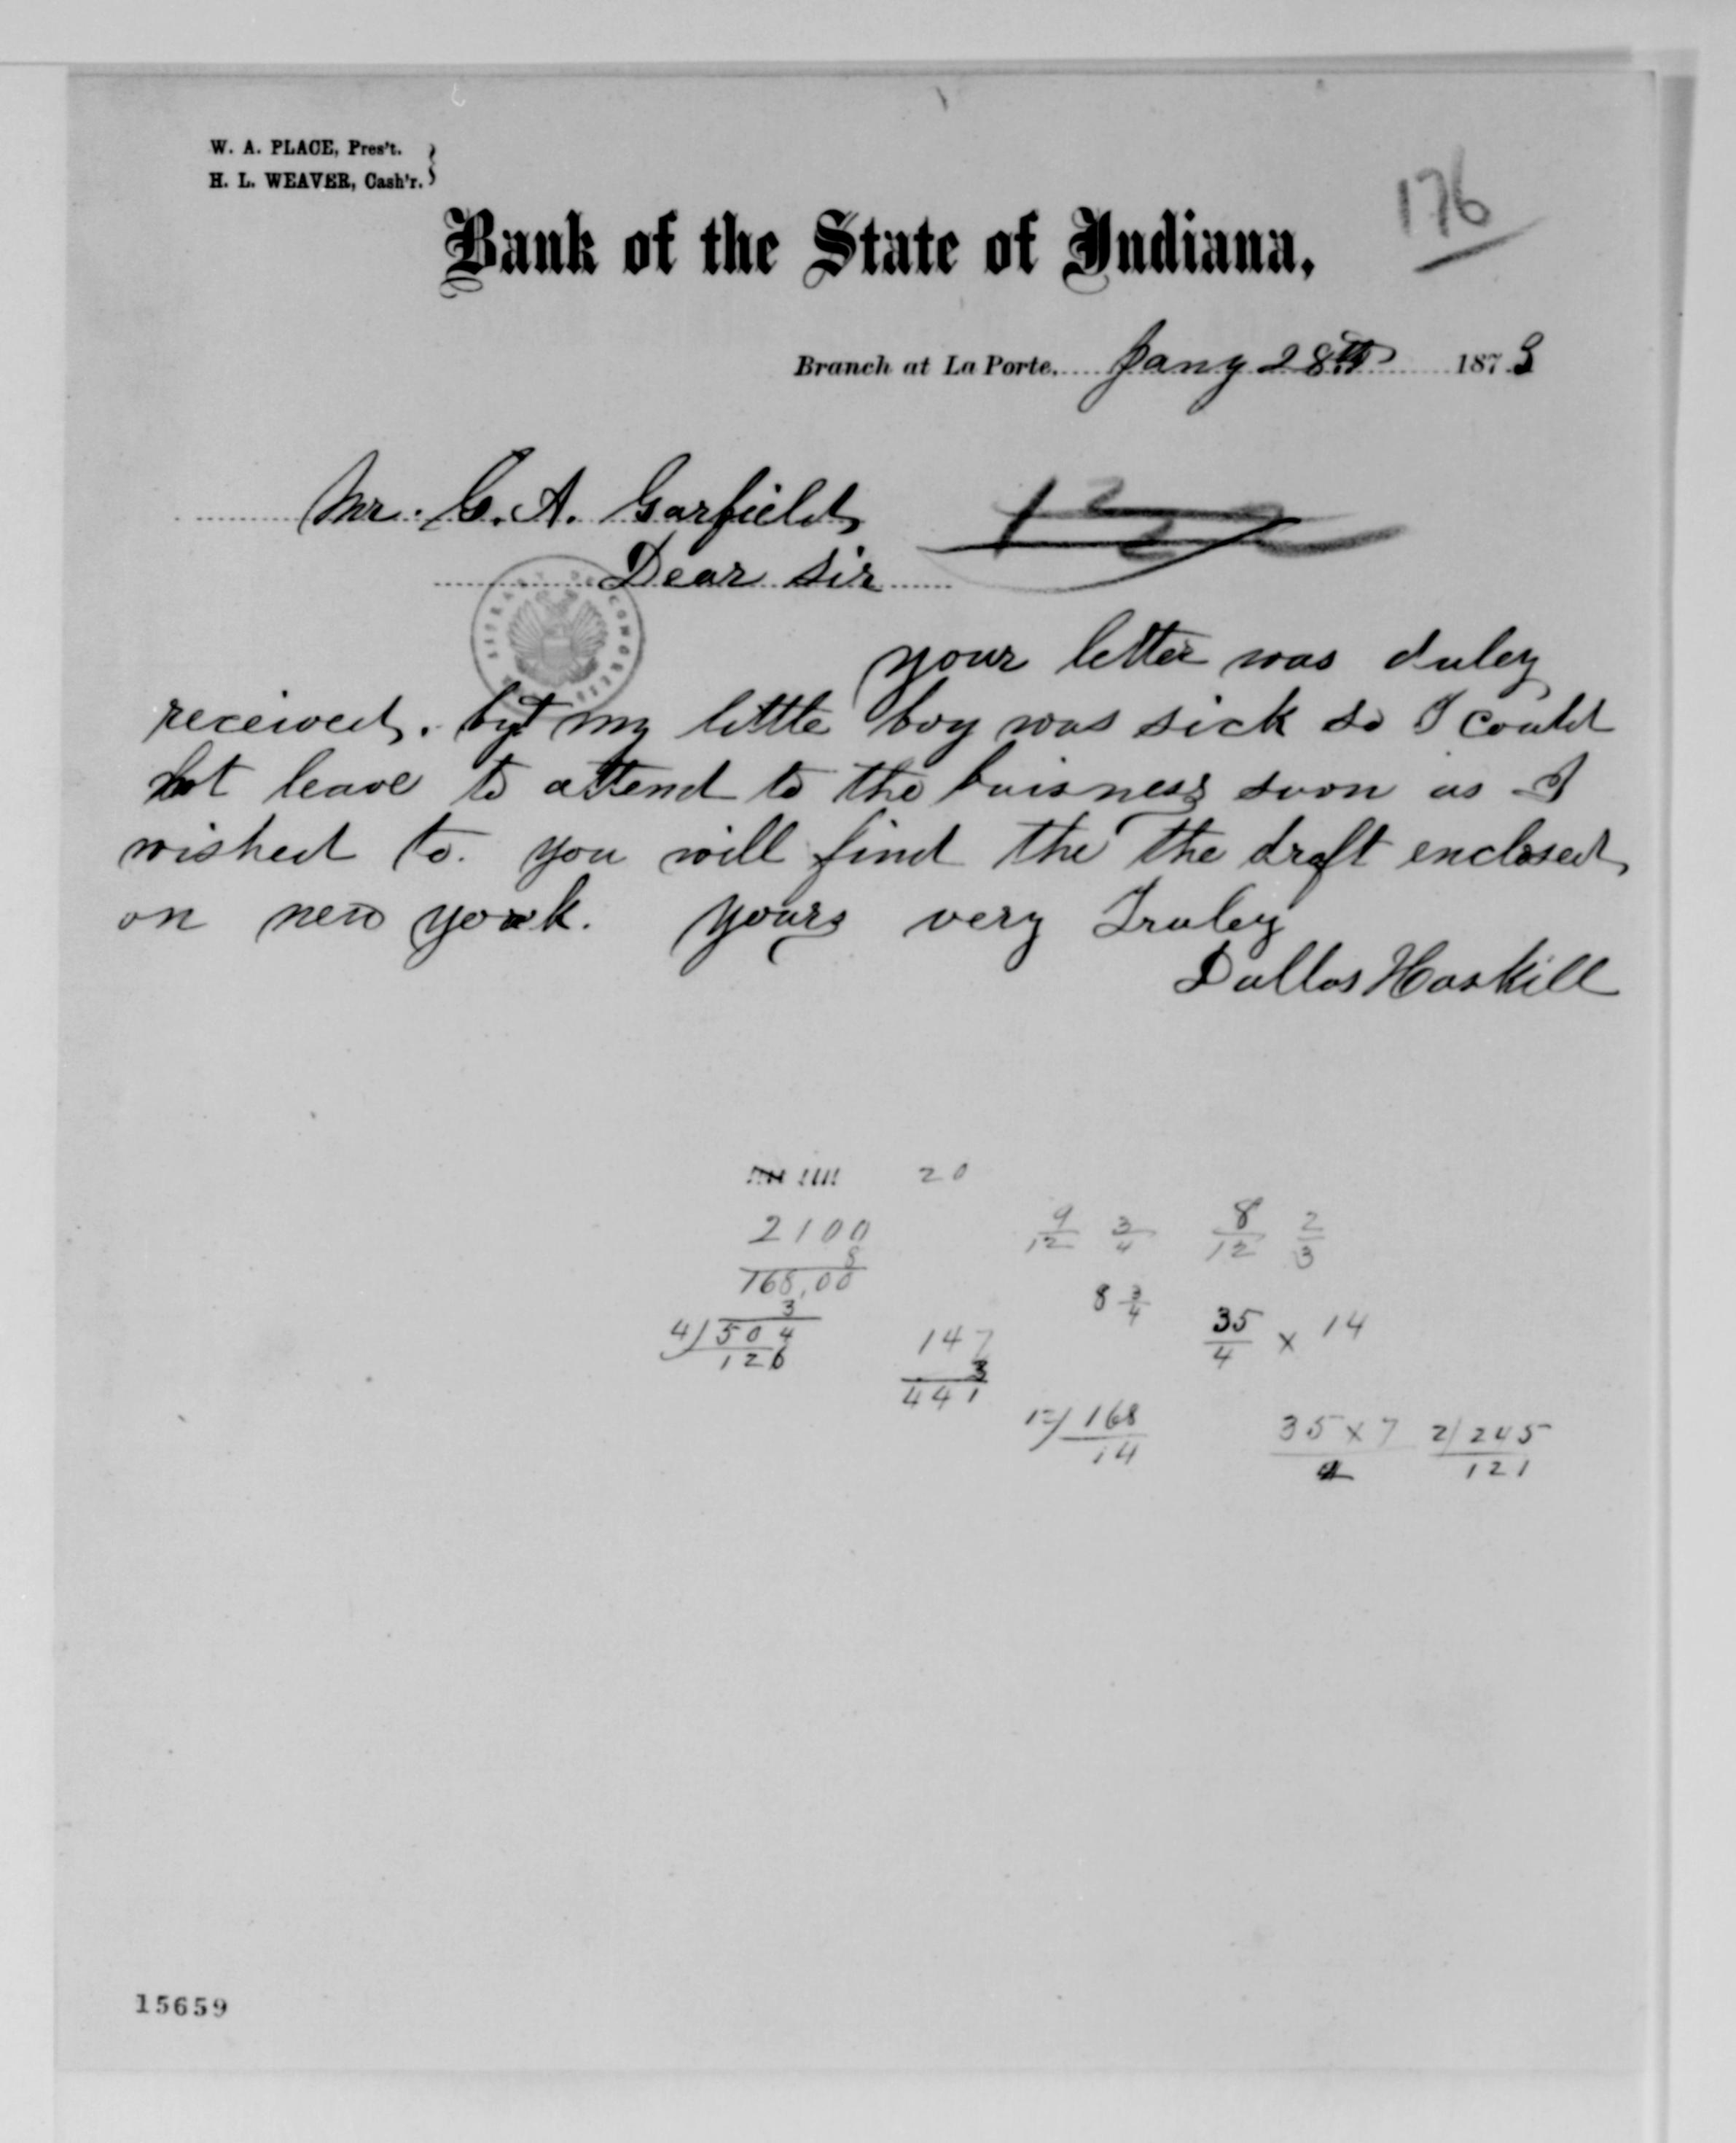 W. A. PLACE, Pres't.
H. L. WEAVER, Cash'r.
176
Bank of the State of Indiana,
Branch at La Porte, Jany 28th 1873
Mr. G. A. Garfield
122
Dear Sir
your letter was duley
received. but my little boy was sick so I could
not leave to attend to the buisness soon as I
wished to. you will find the the draft enclosed
on new york. yours very Truley
Dallas Haskill
20
2100
8
168,00
3
4) 504
126
147
3
441
9/12 3/4 8/12 2/3
8 3/4 35/4 x 14
12) 168
14
35 x 7
2) 245
121
15659